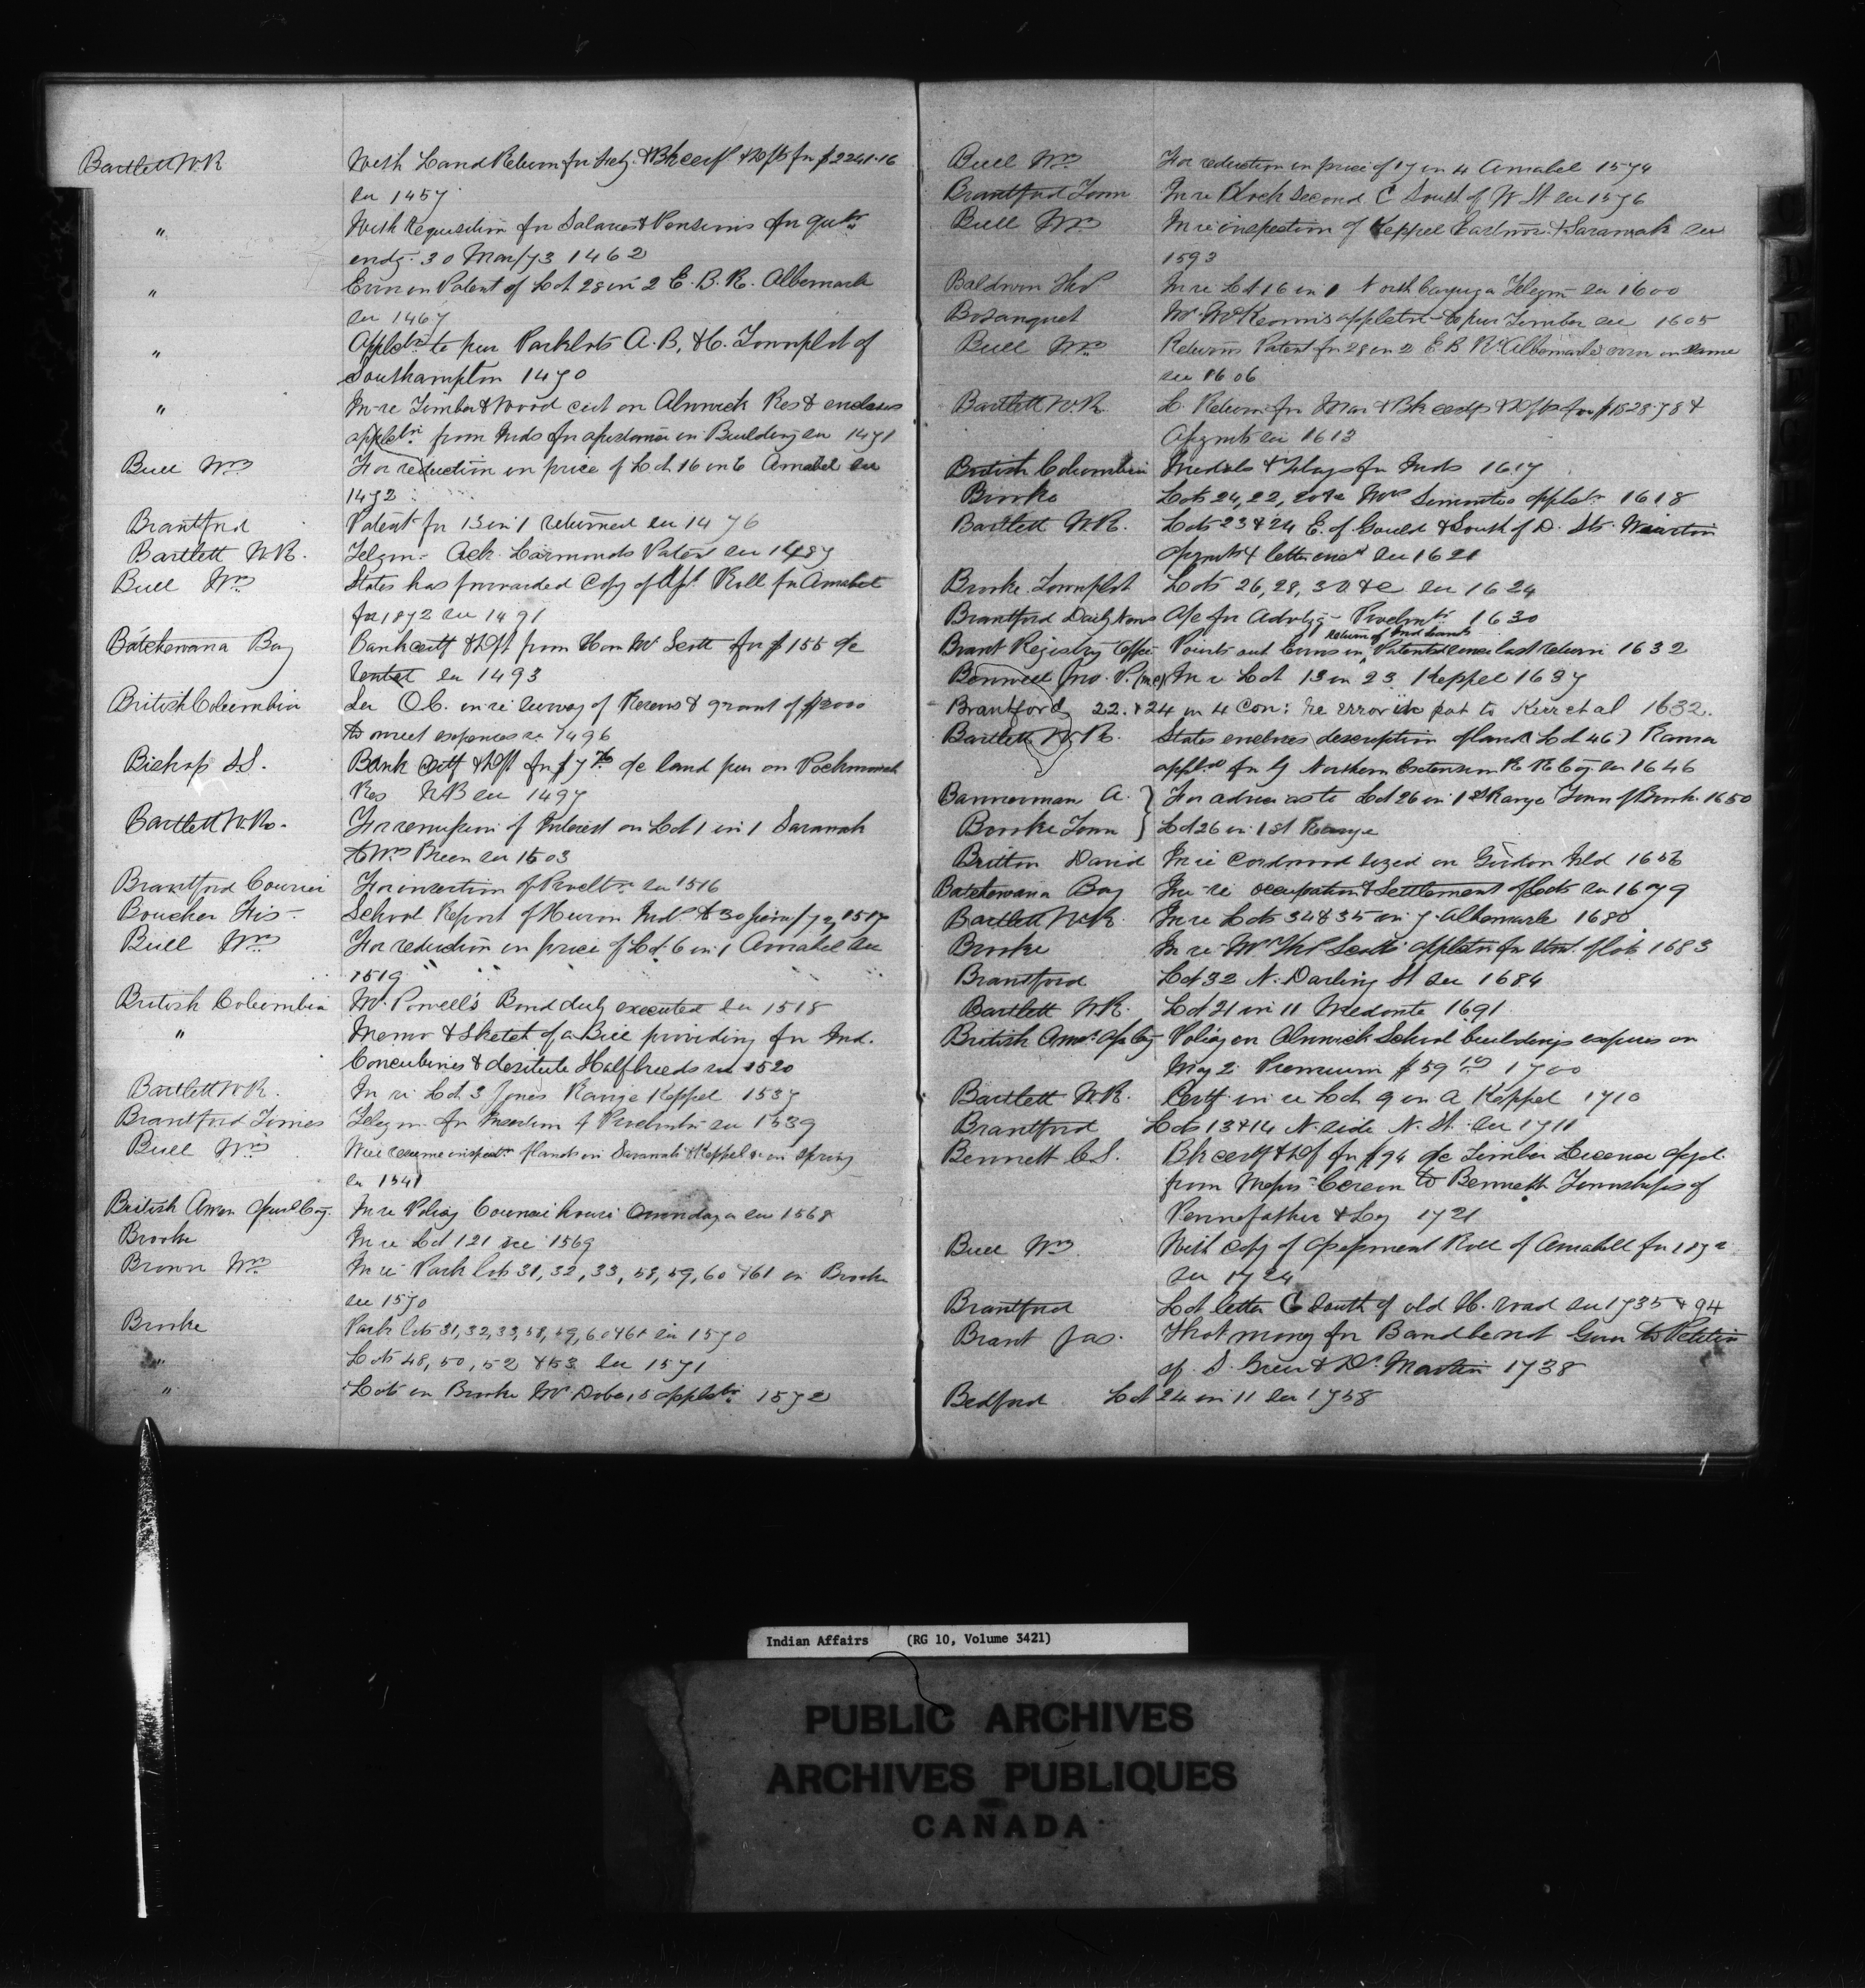 Bartlett W.R. With Land Return for Feby. & Bk certf & Dfts for $2241.16
see 1457
" With Requisition for Salaries & Pensions for qutr
endg. 30 Mar/73 1462
" Error in Patent of Lot 28 in 2 E.B.R. Albemarle
see 1467
" Applctn to pur Parklots A.B, & C. Townplot of
Southampton 1470
" In re Timber & Wood cut on Alnwick Res & encloses
applctn from Inds for in Building see 1471
Bull Wm For reduction in price of Lot 16 in 6 Amabel see
1472
Brantford Patent for 13 in 1 returned see 1476
Bartlett W.R. Telgm - Ack. Larmonds Patent see 1487
Bull Wm States has forwarded Copy of Asst Roll for Amabel
for 1872 see 1491
Batchewana Bay Bank certf & Dft from Hon Mr Scott for $155 a/c
see 1493
British Columbia See O.C. in re survey of Reserves & grant of $2000
to meet expenses see 1496
Bishop S.S. Bank certf & Dft for $7 a/c land pur on Pockmouch
Res N.B see 1497
Bartlett W.R. For remission of Interest on Lot 1 in 1 Sarawak
to Wm Breen see 1503
Brantford Courier For insertion of Proclt. see 1516
Boucher Fis - School Report of Huron Inds to 30 June/72, 1517
Bull Wm For reduction in price of Lot 6 in 1 Amabel see
1519
British Columbia Mr Powell's Bond duly executed see 1518
" Memo & Sketch of a Bill providing for Ind.
Concubines & destitute Halfbreeds see 1520
Bartlett W.R. In re Lot 3 Jones Range Keppel 1537
Brantford Times Telegm for Insertion of Proclmtn see 1539
Bull Wm Will resume inspectn of lands in Sarawak & Keppel in spring
see 1541
British Amern Assce Coy. In re Policy Council house Onondaga see 1568
Brooke In re Lot 121 see 1569
Brown Wm In re Park lots 31, 32, 33, 58, 59, 60 & 61 in Brooke
see 1570
Brooke Park lots 31, 32, 33, 58, 59, 60 & 61 see 1570
" Lots 48, 50, 52 & 53 see 1571
" Lots in Brooke Mr. applctn. 1572
Bull Wm For reduction in price of 17 in 4 Amabel 1574
Brantford Town In re Block Second C South of W St see 1576
Bull Wm In re inspection of Keppel Eastnor & Sarawak see
1593
Baldwin Thos In re Lot 16 in 1 North Cayuga Telegm see 1600
Bosanquet Mr. applctn to pur Timber see 1605
Bull Wm Returns Patent for 28 in 2 E.B.R. Albemarle error in same
see 1606
Bartlett W.R. L. Return for Mar & Bk certfs & Dfts for $1828.78 &
asgmts see 1613
British Columbia Medals & Flags for Inds 1617
Brooke Lots 24, 22, 20 &c Mrs applctn 1618
Bartlett W.R. Lots 23 & 24 E. of Gould & South of D. Sts. Wiarton
asgmts & letter encd see 1621
Brooke Townplot Lots 26, 28, 30 &c see 1624
Brantford Daily News A/c for Advtzg - Proclmtn 1630
return of Ind lands
Brant Registry Office Points out Errors in Patented since last return 1632
Jno. P. (Mc) In re Lot 13 in 23 Keppel 1637
Brantford 22. & 24 in 4 Con: re error in pat to Kerr et al 1632.
Bartlett W.R. States encloses description of land (Lot 46) Rama
appld for by Northern Extension R.R. Coy. see 1646
Bannerman A. } For advice as to Lot 26 in 1st Range Town of Brooke 1650
Brooke Town } Lot 26 in 1st Range
Britton David In re Cordwood seized on Girdon Isld 1656
Batchewana Bay In re occupation & Settlement of Lots see 1679
Bartlett W.R. In re Lots 34 & 35 in 7 Albemarle 1680
Brooke In re Mr Thos Scotts applctn for of lots 1683
Brantford Lot 32 N. Darling St see 1684
Bartlett W.R. Lot 21 in 11 Medonte 1691
British Amn Ass Coy Policy on Alnwick School buildings expires on
May 2. Premium $59 1700
Bartlett W.R. Certf in re Lot 9 in A Keppel 1710
Brantford Lots 13 & 14 N. side N. St. see 1711
Bennett C.S. Bk certf & Df for $94 a/c Timber License appd.
from Messrs to Bennett Townships of
Pennefather & Ley 1721
Bull Wm With copy of Assessment Roll of Amabell for 1872
see 1724
Brantford Lot letter C South of old H. road see 1735 & 94
Brant Jas. That money for Band be not Given to Petition
of S. Green & D. Martin 1738
Bedford Lot 24 in 11 see 1758
Indian Affairs (RG 10, Volume 3421)
PUBLIC ARCHIVES
ARCHIVES PUBLIQUES
CANADA